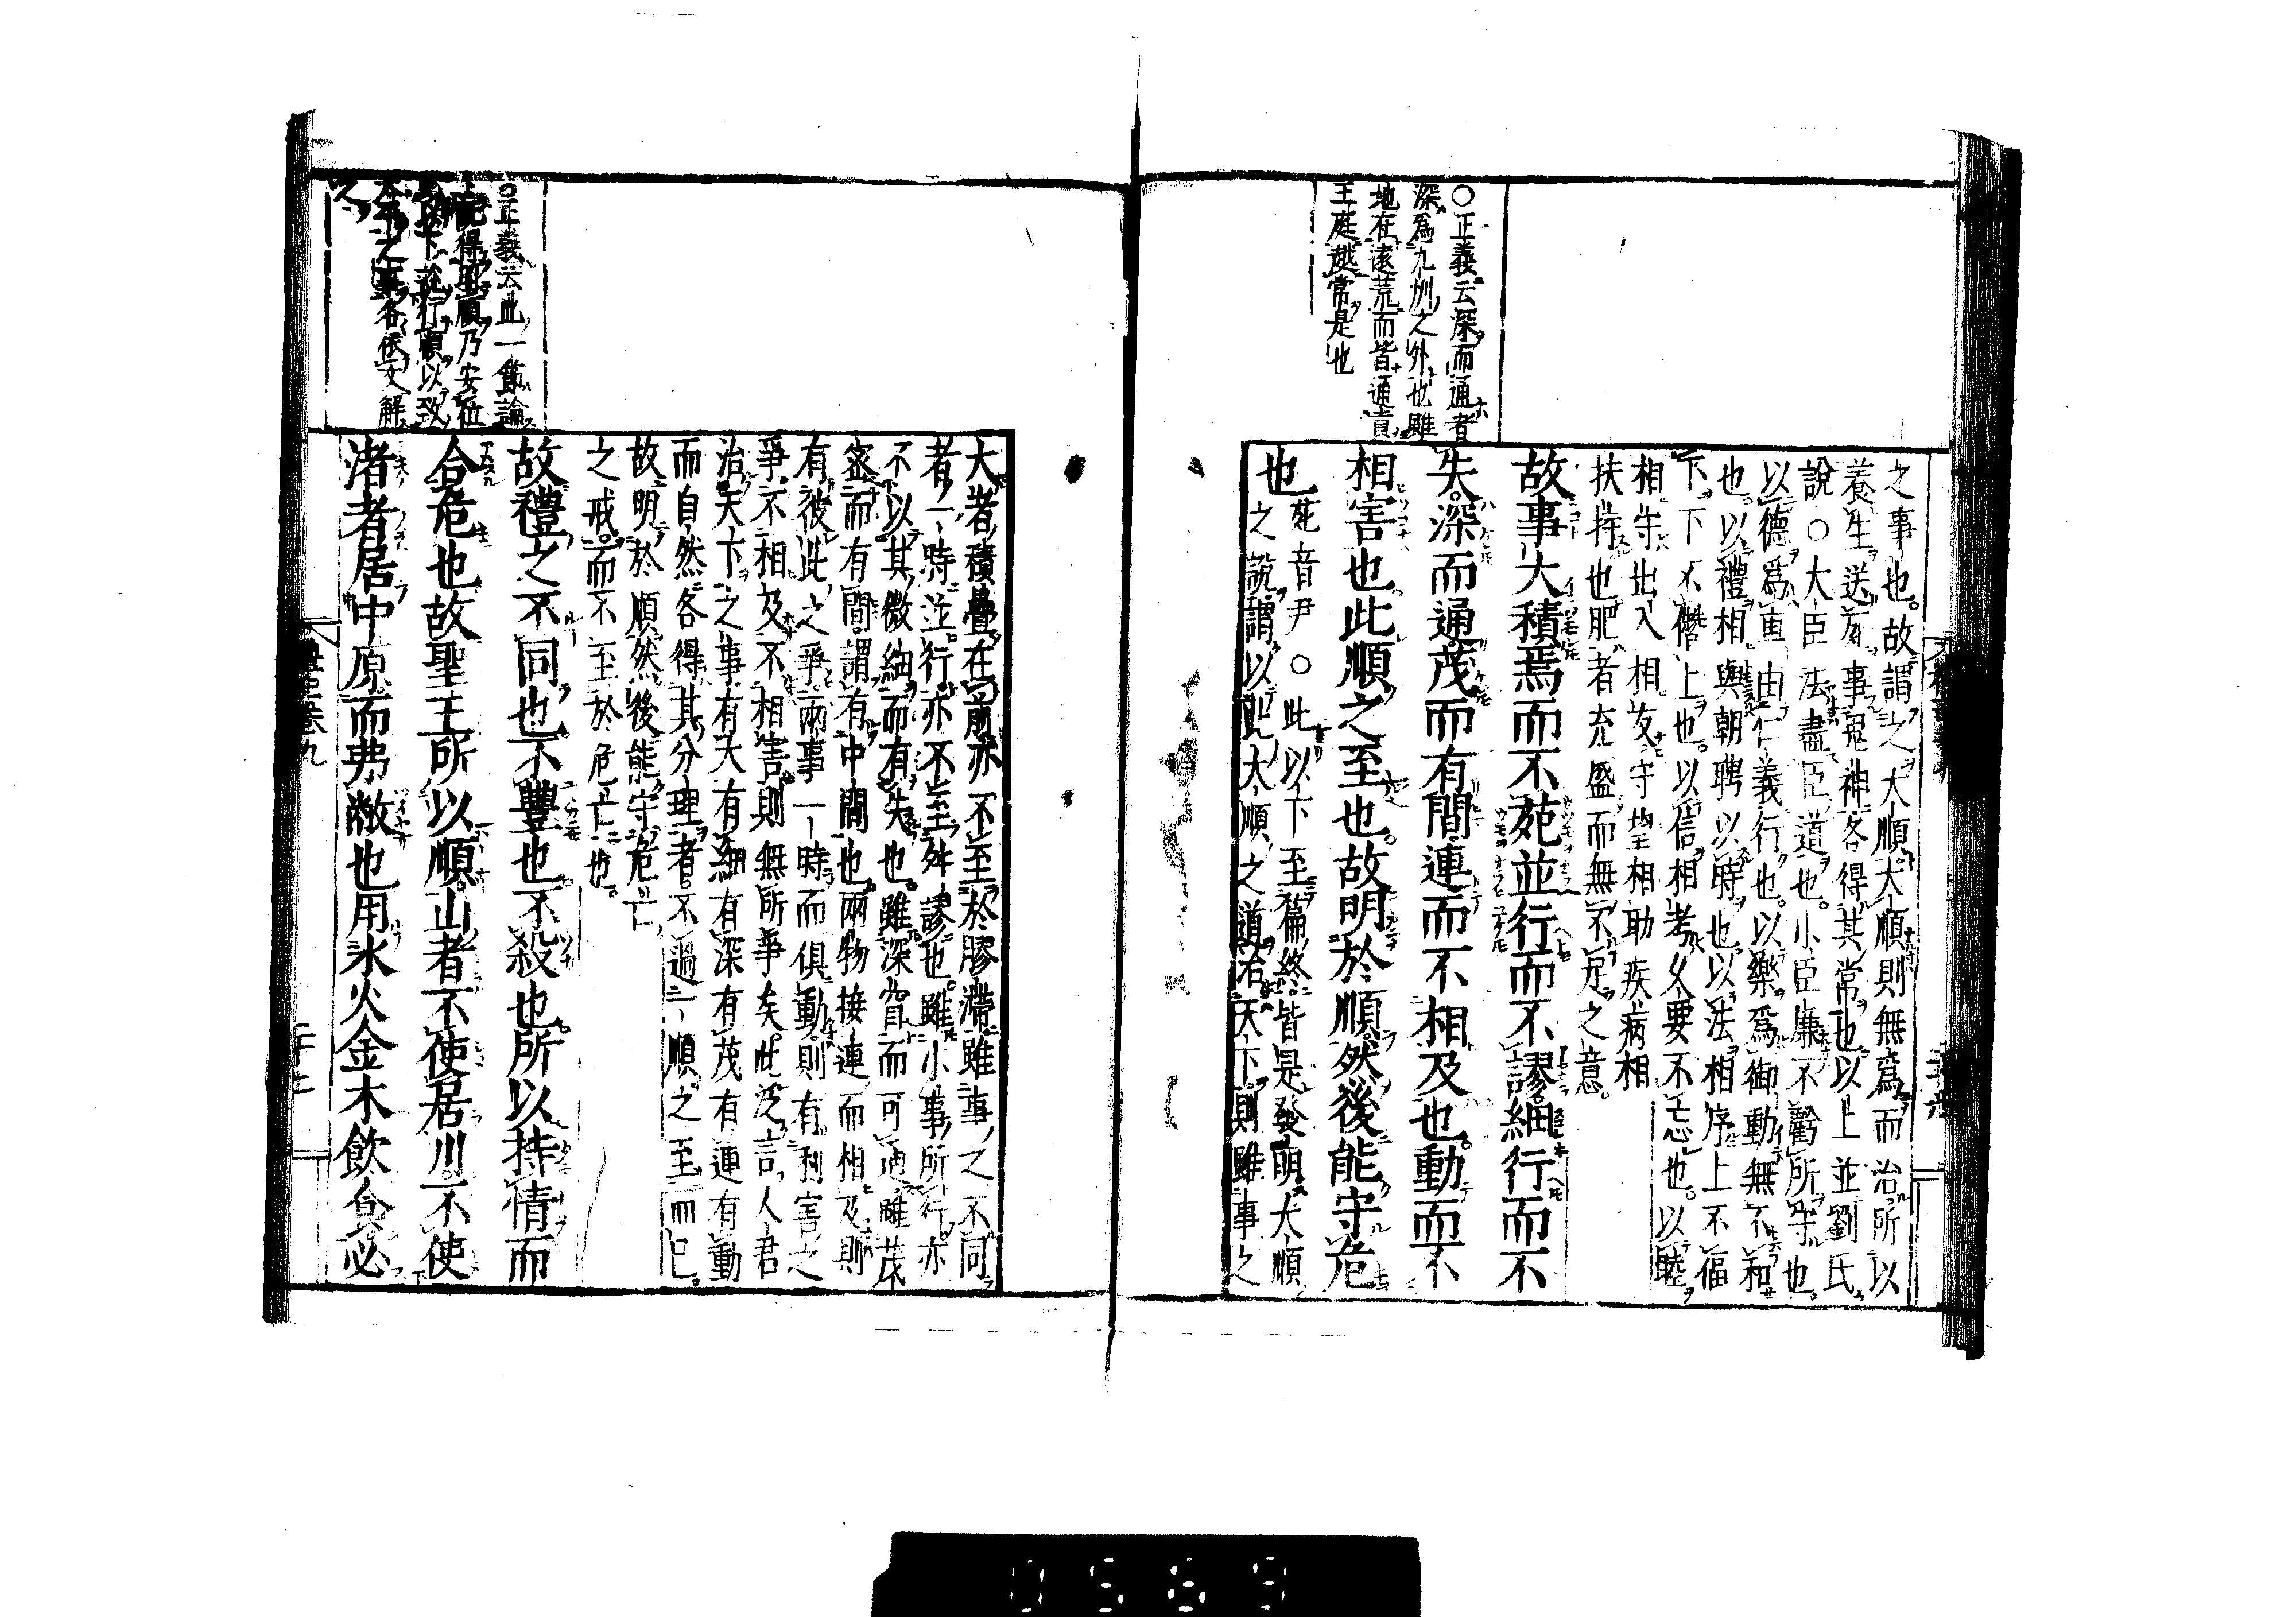 ○正義云深而通者
深為九州之外也雖
地在遠荒而皆通貢
王庭越常是也
之事也。故謂之大順大順則無為而治所以
養生送死事鬼神各得其常也以上並劉氏
說○大臣法盡臣道也。小臣廉不虧所守也。
以德為車由仁義行也。以樂為御動無不和
也。以禮相與朝聘以時也。以法相序上不偪
下。下不僭上也。以信相考久要不忘也。以睦
相守出入相友守望相助疾病相
扶持也肥者充盛而無不足之意。
故事大積焉而不苑並行而不謬細行而不
失。深而通茂而有間。連而不相及也。動而不
相害也。此順之至也。故明於順然後能守危
也
苑音尹○此以下至篇終皆是發明大順
之說謂以此大順之道治天下則雖事之
大者積疊在前亦不至於膠滯雖事之不同
者一時並行亦不至舛謬也。雖小事所行亦
不以其微細而有失也。雖深窅而可通雖茂
密而有間謂有中間也。兩物接連而相及則
有彼此之爭兩事一時而俱動則有利害之
爭不相及不相害則無所爭矣此泛言人君
治天下之事有大有細有深有茂有連有動
而自然各得其分理者。不過一順之至而已。
故明於順然後能守危亡
之戒。而不至於危亡也。
○正義云此一節論
下說行順以致
之事各依文解
之
故禮之不同也。不豐也。不殺也。所以持情而
合危也。故聖王所以順。山者不使居川。不使
渚者居中原。而弗敝也用水火金木飲食必
禮記卷九
0569